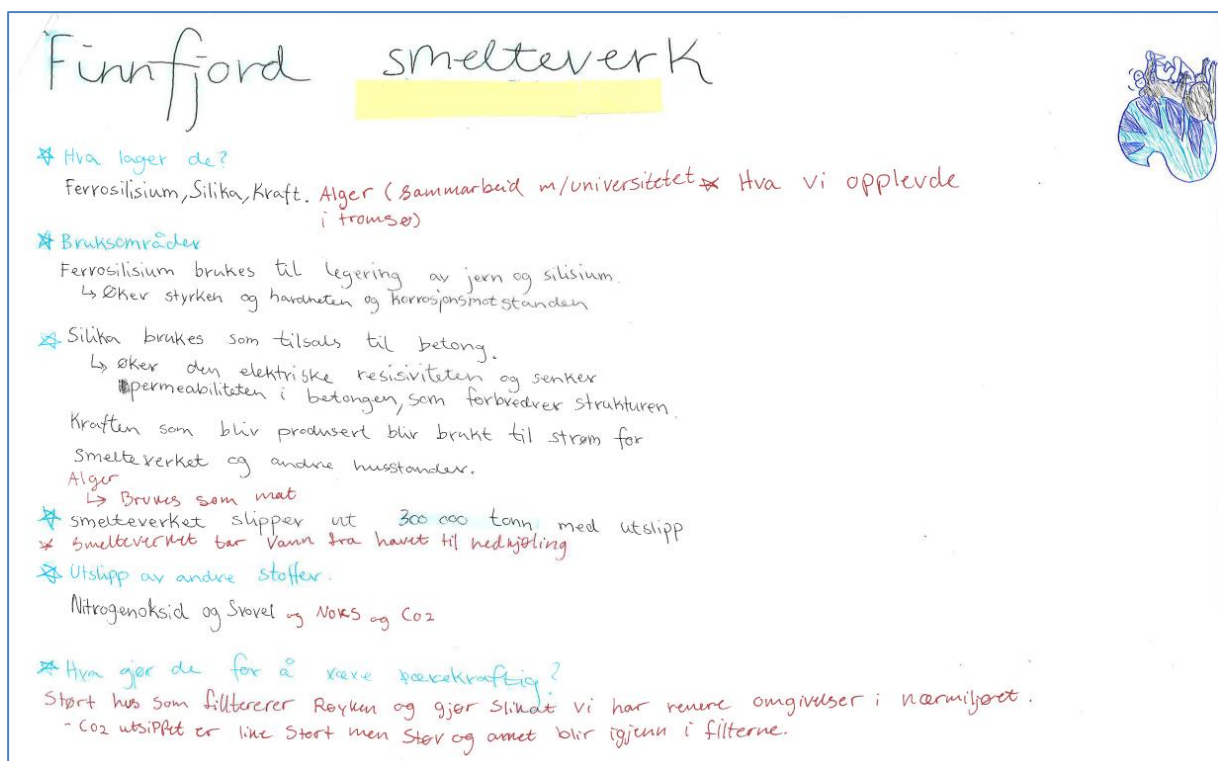 Finnfjord smelteverk
☆ Hva lager de?
Ferrosilisium, Silika, Kraft. Alger (sammarbeid m/universitetet
i tromsø)
* Hva vi opplevde
☆ Bruksområder
Ferrosilisium brukes til legering av jern og silisium.
↳ Øker styrken og hardheten og korrosjonsmotstanden
☆ Silika brukes som tilsats til betong.
↳ Øker den elektriske resisiviteten og senker
permeabiliteten i betongen, som forbredrer strukturen.
Kraften som bliv produsert blir brukt til strøm for
smelteverket og andre husstander.
Alger
↳ Brukes som mat
☆ smelteverket slipper ut 300 000 tonn med utslipp
* smelteverket tar vann fra havet til nedkjøling
☆ Utslipp av andre stoffer.
Nitrogenoksid og Svovel og NOKS og CO2
☆ Hva gjør de for å være bærekraftig?
Stort hus som filltererer Røyken og gjør slikat vi har renere omgivelser i nærmiljøet.
- CO2 utsippet er like stort men støv og annet blir igjenn i filterne.